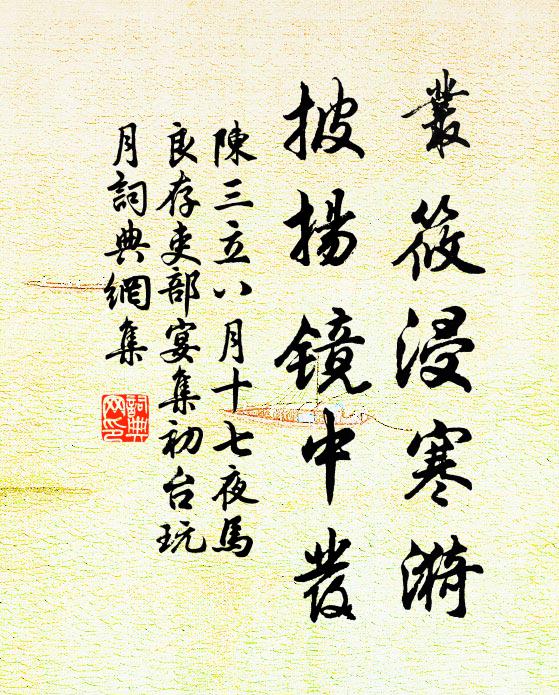 叢筱浸寒漪
披揚鏡中發
陳三立八月十七夜馬
良存吏部宴集初台玩
月詞典網集
詞典網印